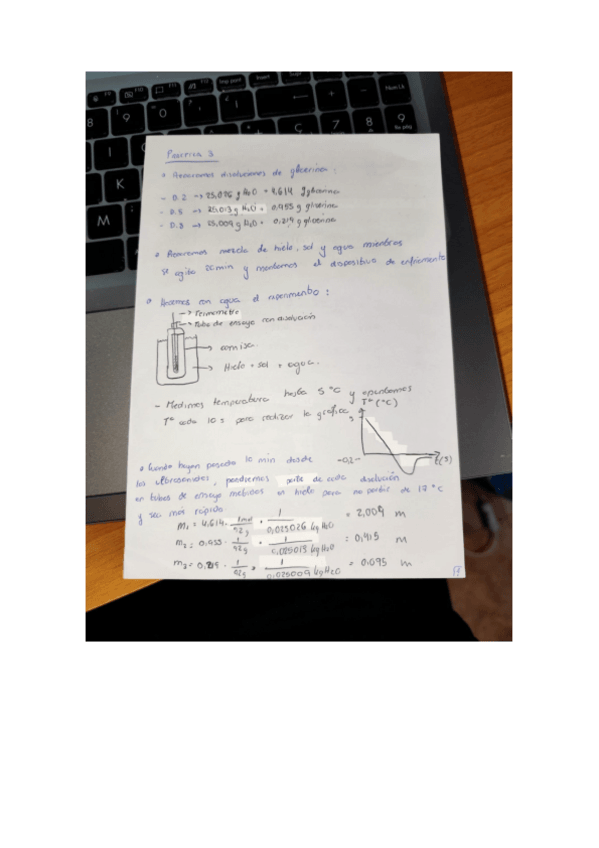 Práctica 3
Preparamos disoluciones de glicerina:
- 0.2 → 25,026 g H2O + 4,614 g glicerina
- 0.5 → 25,013 g H2O + 0,955 g glicerina
- 0.8 → 25,009 g H2O + 0,219 g glicerina
Preparamos mezcla de hielo, sal y agua mientras
se agita 20 min y montamos el dispositivo de enfriamiento
con agua el experimento:
→ Termometro
→ Tubo de ensayo con disolución
→ camisa
→ Hielo + sal + agua.
- Medimos temperatura hasta 5 °C y apuntamos
Tª cada 10 s para realizar la gráfica
Tª (°C)
5
-0,2
t(s)
Cuando hayan pasado 10 min desde
los ultrasonidos, pondremos parte de cada disolución
en tubos de ensayo metidos en hielo para no partir de 17 °C
y sea más rápido
m1 = 4,614 · 1mol/92g · 1/0,025026 kg H2O = 2,004 m
m2 = 0,955 · 1/92g · 1/0,025013 kg H2O = 0,415 m
m3 = 0,219 · 1/92g · 1/0,025009 kg H2O = 0,095 m